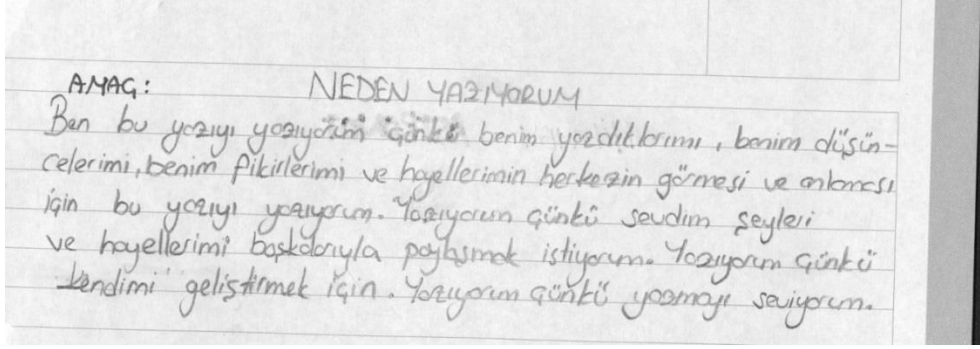 AMAÇ: NEDEN YAZIYORUM
Ben bu yazıyı yazıyorum çünkü benim yazdıklarımı, benim düşün-
celerimi, benim fikirlerimi ve hayellerimin herkezin görmesi ve anlaması
için bu yazıyı yazıyorum. Yazıyorum çünkü sevdim şeyleri
ve hayellerimi başkalarıyla paylaşmak istiyorum. Yazıyorum çünkü
kendimi geliştirmek için. Yazıyorum çünkü yazmayı seviyorum.